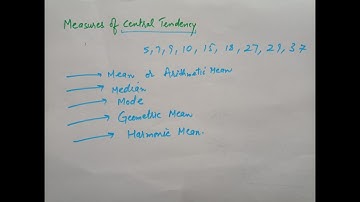 Measures of Central Tendency
5, 7, 9, 10, 15, 18, 27, 29, 37
Mean or Arithmatic Mean
Median
Mode
Geometric Mean
Harmonic Mean.